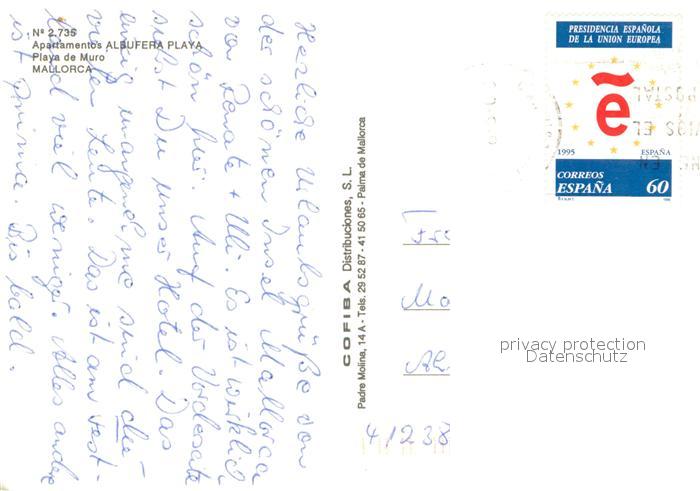 Nº 2.735
Apartamentos ALBUFERA PLAYA
Playa de Muro
MALLORCA
Herzliche Urlaubsgrüße von
der schönen Insel Mallorca
von Renate + Ulli. Es ist wirklich
schön hier. Auf der Vorderseite
siehst Du unser Hotel. Das
einzig unangenehme sind die
vielen Leute. Das ist am Fest-
land viel weniger. Alles andere
ist prima. Bis bald.
COFIBA Distribuciones, S. L.
Padre Molina, 14 A - Tels. 29 52 87 - 41 50 65 - Palma de Mallorca
PRESIDENCIA ESPAÑOLA
DE LA UNION EUROPEA
ẽ
1995 ESPAÑA
CORREOS
ESPAÑA 60
41238
privacy protection
Datenschutz